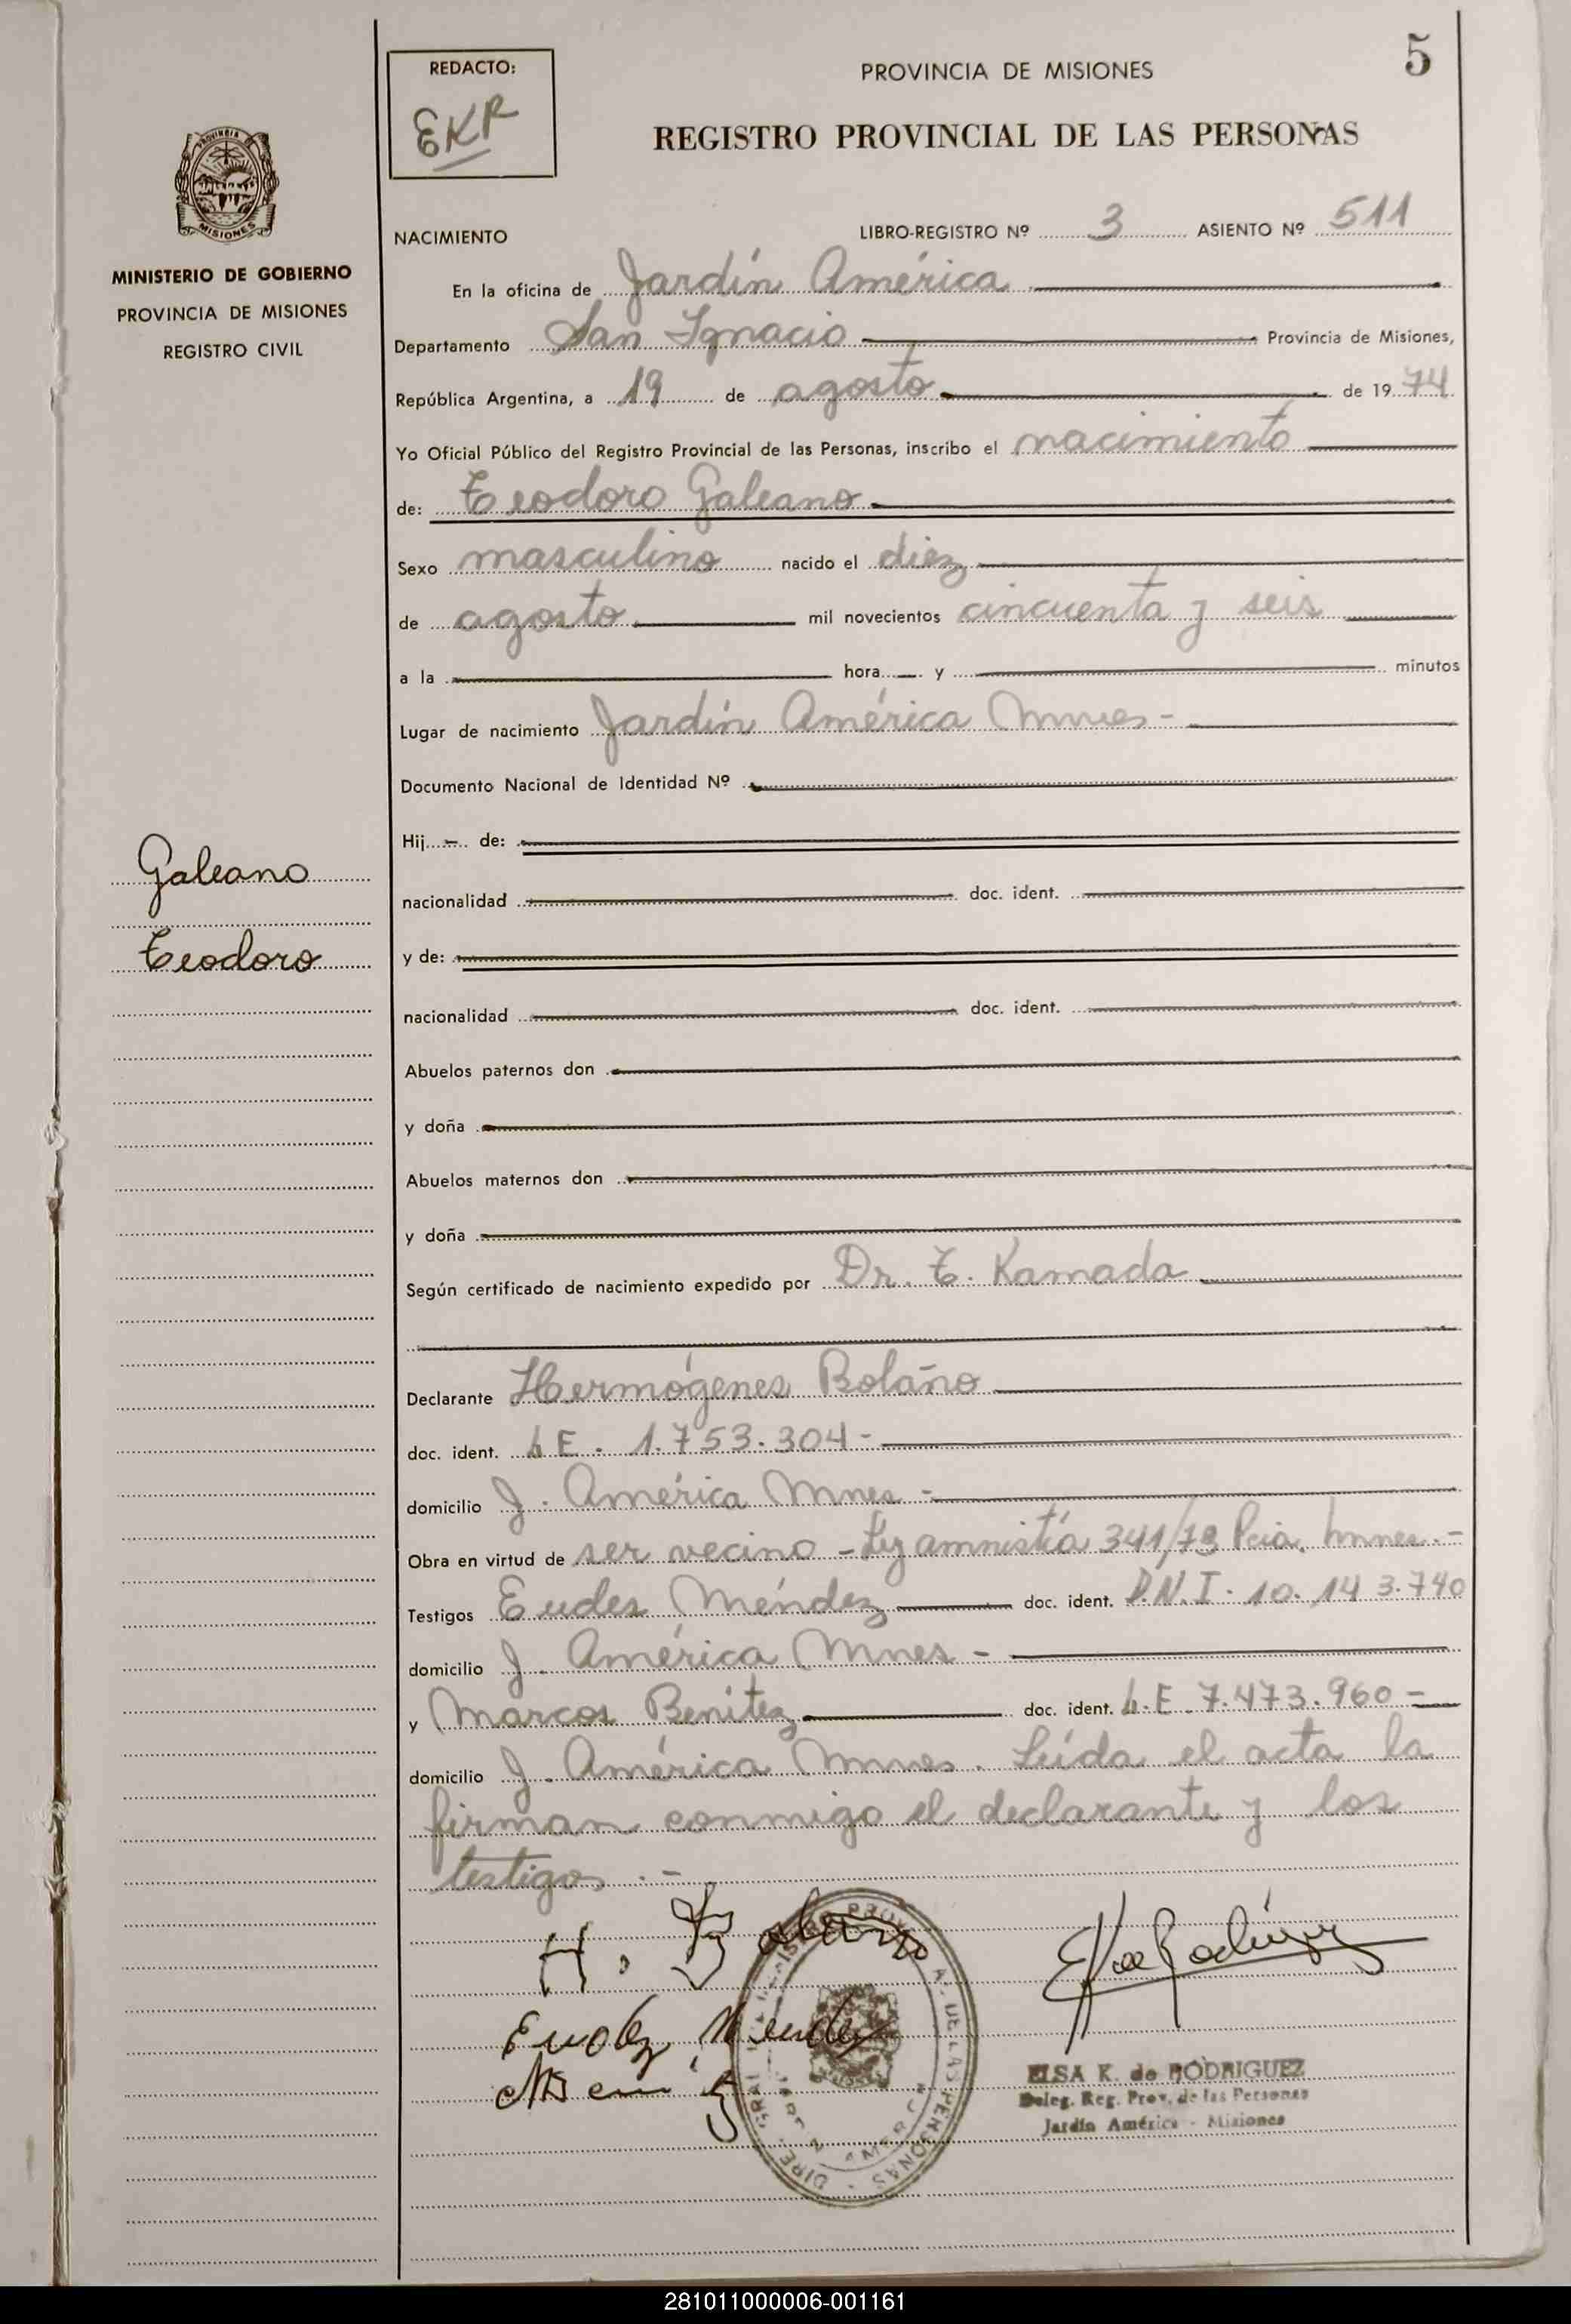 5
REDACTO:
EKR
PROVINCIA DE MISIONES
REGISTRO PROVINCIAL DE LAS PERSONAS
MISIONES
MINISTERIO DE GOBIERNO
PROVINCIA DE MISIONES
REGISTRO CIVIL
NACIMIENTO LIBRO-REGISTRO Nº 3 ASIENTO Nº 511
En la oficina de Jardín América
Departamento San Ignacio Provincia de Misiones,
República Argentina, a 19 de agosto de 1974
Yo Oficial Público del Registro Provincial de las Personas, inscribo el nacimiento
de: Teodoro Galeano
Sexo masculino nacido el diez
de agosto mil novecientos cincuenta y seis
a la hora y minutos
Lugar de nacimiento Jardín América Mnes -
Documento Nacional de Identidad Nº
Hij - de:
Galeano
nacionalidad doc. ident.
Teodoro
y de:
nacionalidad doc. ident.
Abuelos paternos don
y doña
Abuelos maternos don
y doña
Según certificado de nacimiento expedido por Dr. T. Kamada
Declarante Hermógenes Bolaño
doc. ident. L E. 1.753.304 -
domicilio J. América Mnes -
Obra en virtud de ser vecino - Ley amnistía 341/73 Pcia. Mnes. -
Testigos Eudes Méndez doc. ident. D.N.I. 10.143.740
domicilio J. América Mnes -
y Marcos Benitez doc. ident. L.E. 7.473.960 -
domicilio J. América Mnes. Leída el acta la
firman conmigo el declarante y los
testigos. -
H. Bolaño
Eudez Mendez
ELSA K. de RODRIGUEZ
Deleg. Reg. Prov. de las Personas
Jardín América - Misiones
281011000006-001161